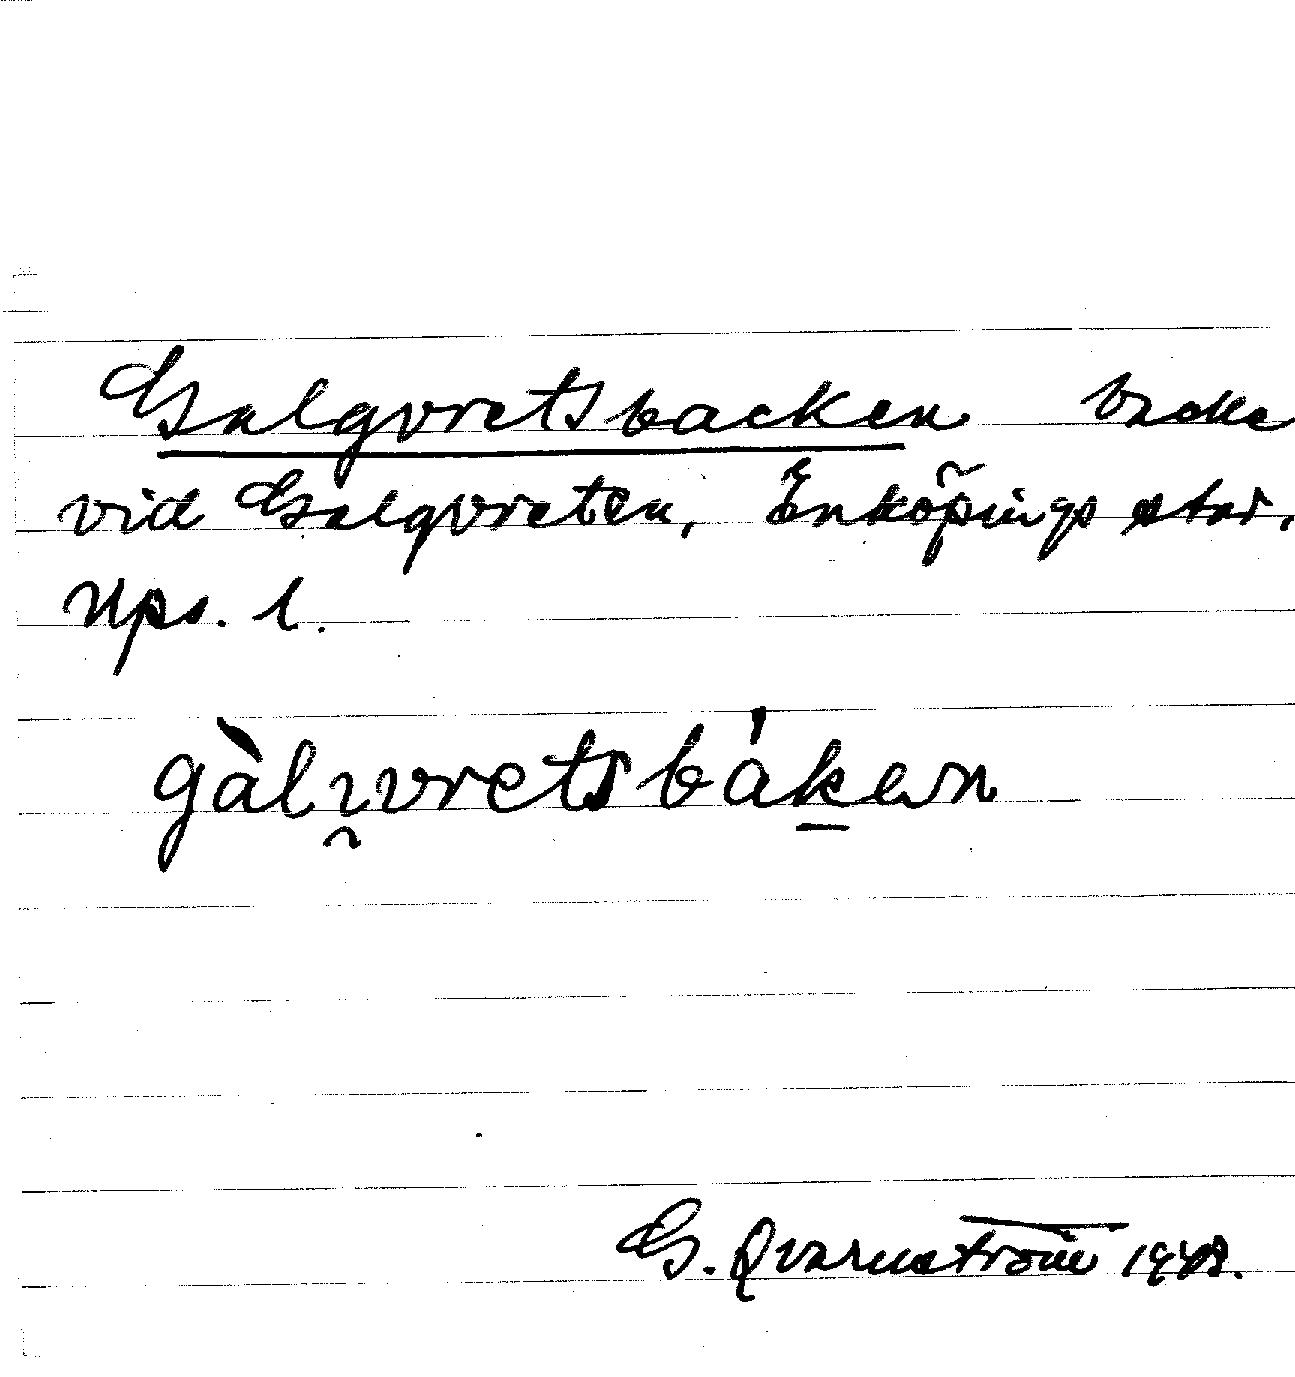 Galgvretsbacken backe
vid Galgvreten, Enköpings stad,
Ups. l.
gàlı̯vretsbáḵen
G. Qvarnström 1948.